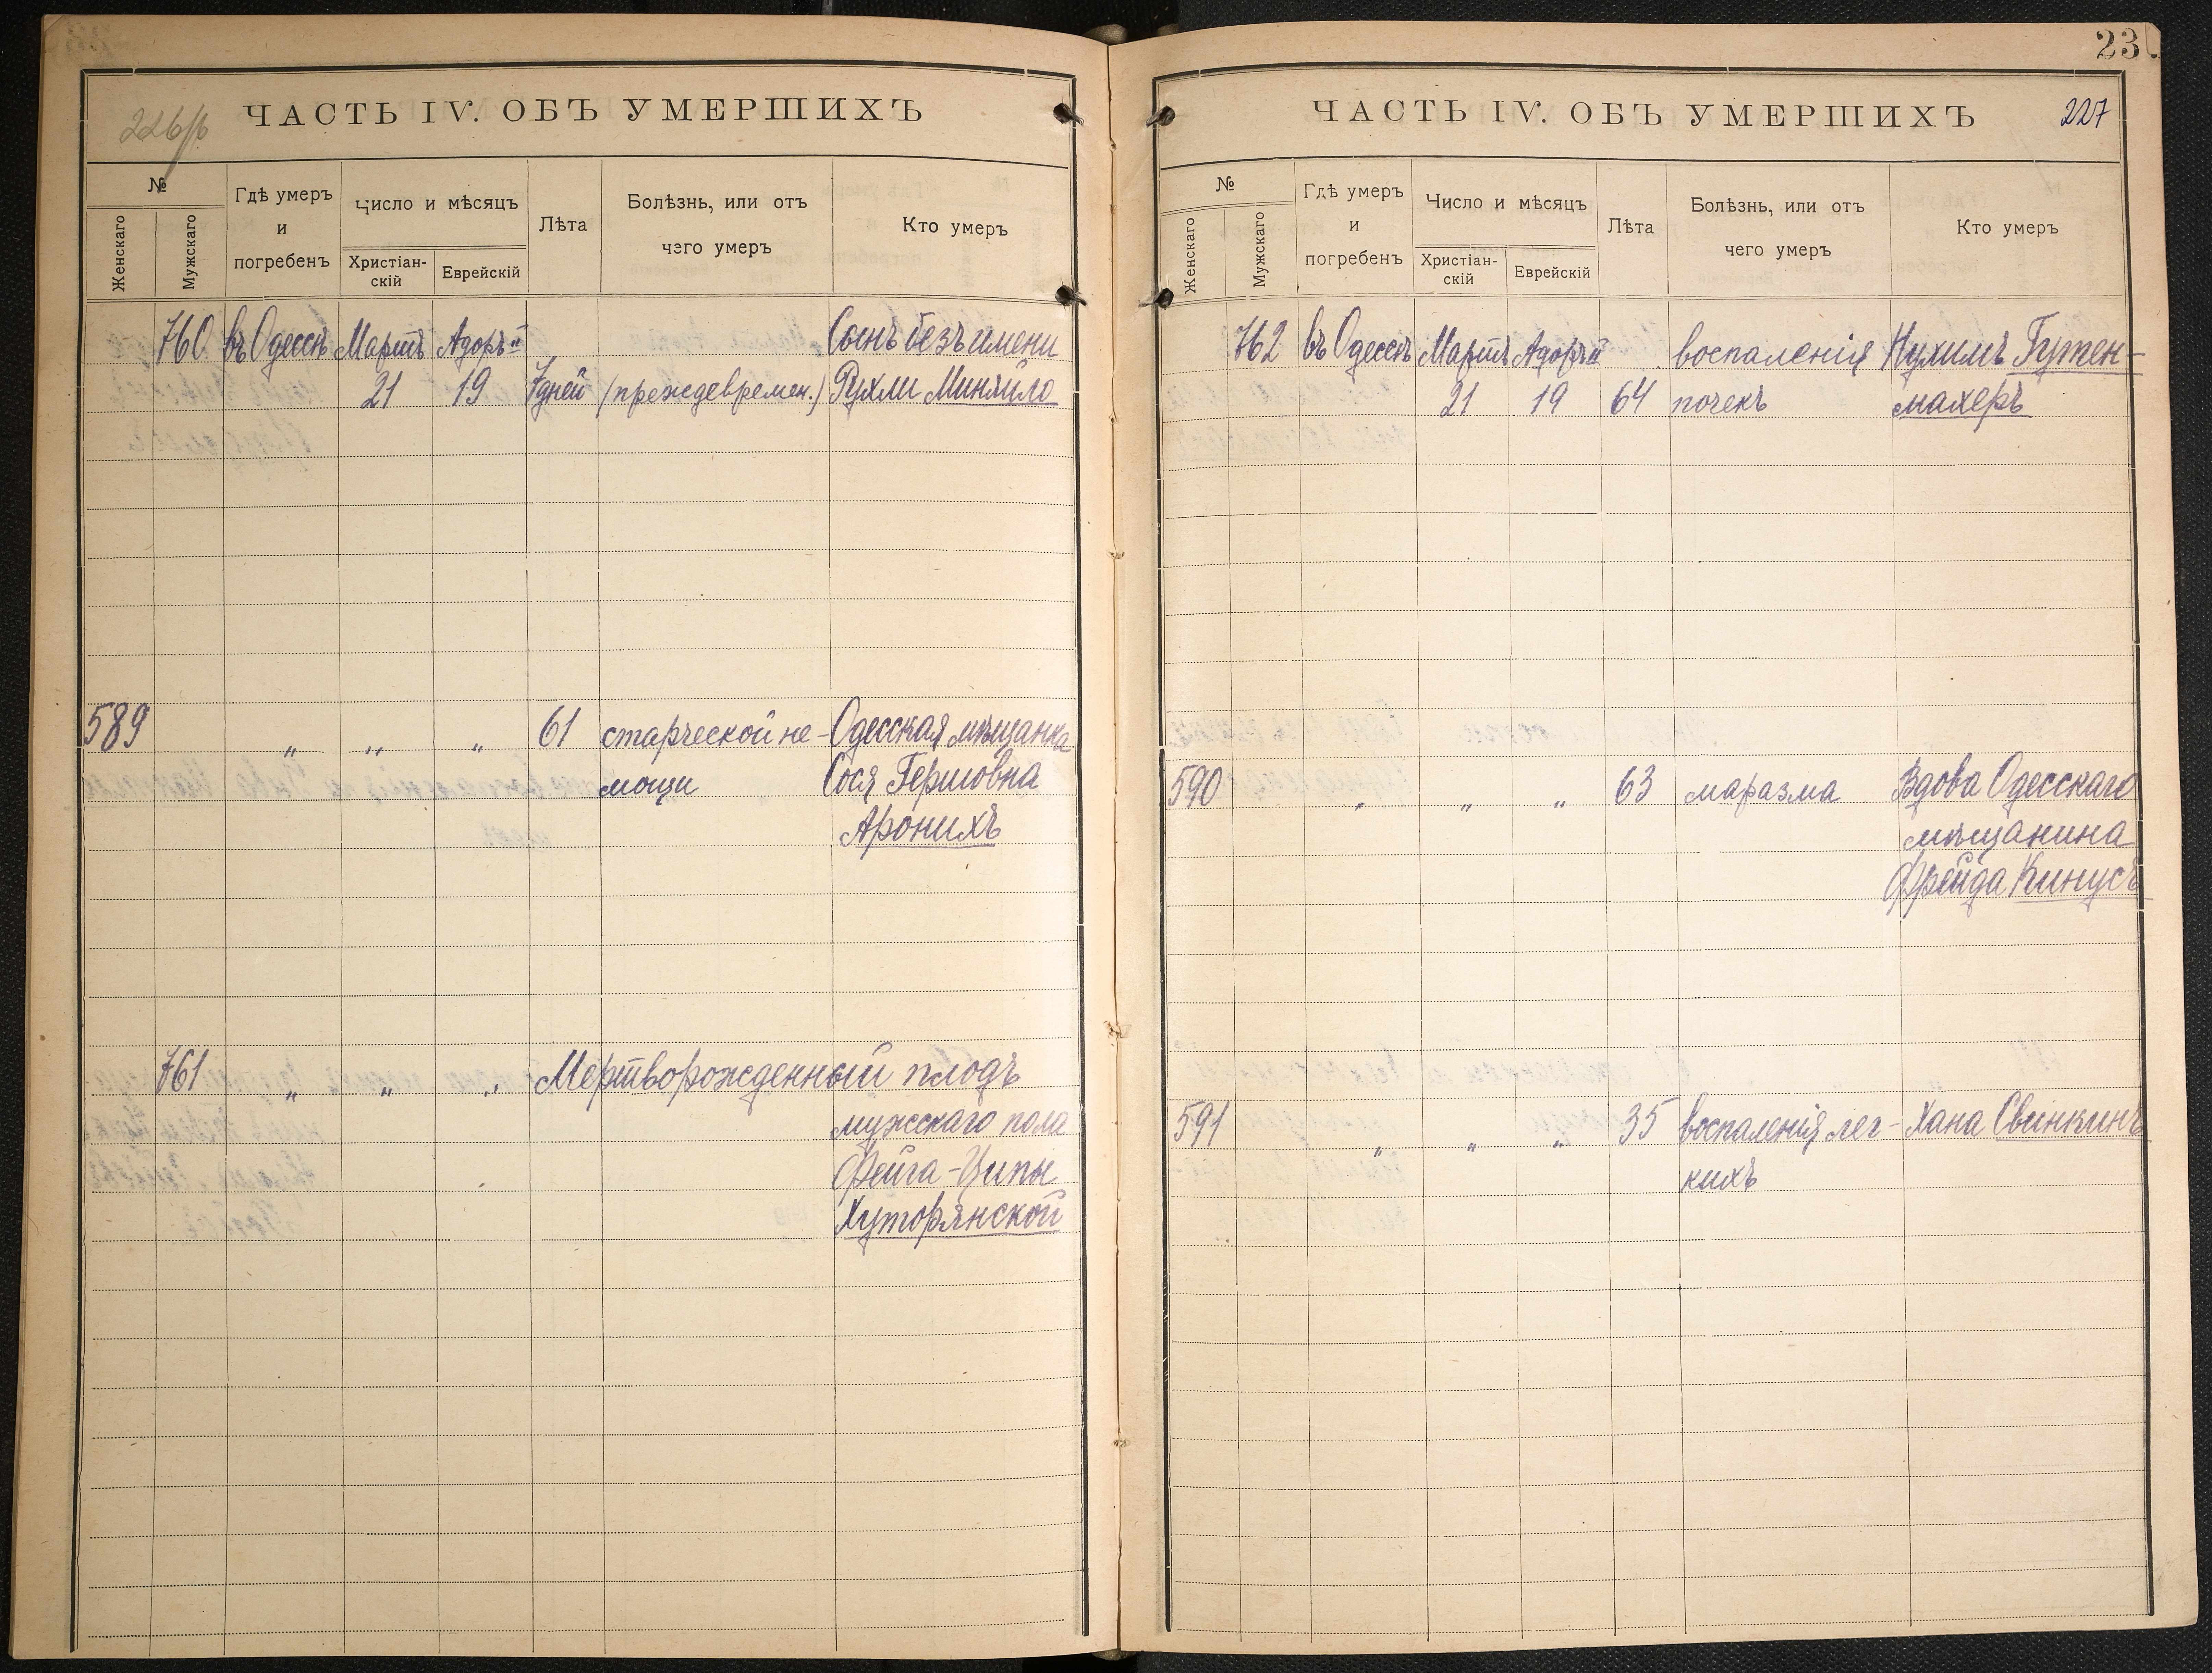 226/б ЧАСТЬ IV. ОБЪ УМЕРШИХЪ
№
Женскаго
Мужскаго
Гдѣ умеръ
и
погребенъ
Число и мѣсяцъ
Христіан-
скій
Еврейскій
Лѣта
Болѣзнь, или отъ
чего умеръ
Кто умеръ
760 въ Одессѣ Мартъ Адоръ II Сынъ безъ имени
21 19 7 дней (преждевремен.) Рухли Миняйло
589 „ „ „ 61 старческой не- Одесская мѣщанка
мощи Сося Гершовна
Аронихъ
761 „ „ „ Мертворожденный плодъ
мужскаго пола
Фейга-Ципы
Хуторянской
23
ЧАСТЬ IV. ОБЪ УМЕРШИХЪ 227
№
Женскаго
Мужскаго
Гдѣ умеръ
и
погребенъ
Число и мѣсяцъ
Христіан-
скій
Еврейскій
Лѣта
Болѣзнь, или отъ
чего умеръ
Кто умеръ
762 въ Одессѣ Мартъ Адоръ II воспаленія Нухимъ Гутен-
21 19 64 почекъ махеръ
590 „ „ „ 63 маразма Вдова Одесскаго
мѣщанина
Фрейда Кинусъ
591 „ „ „ 35 воспаленія лег- Хана Свинкинъ
кихъ